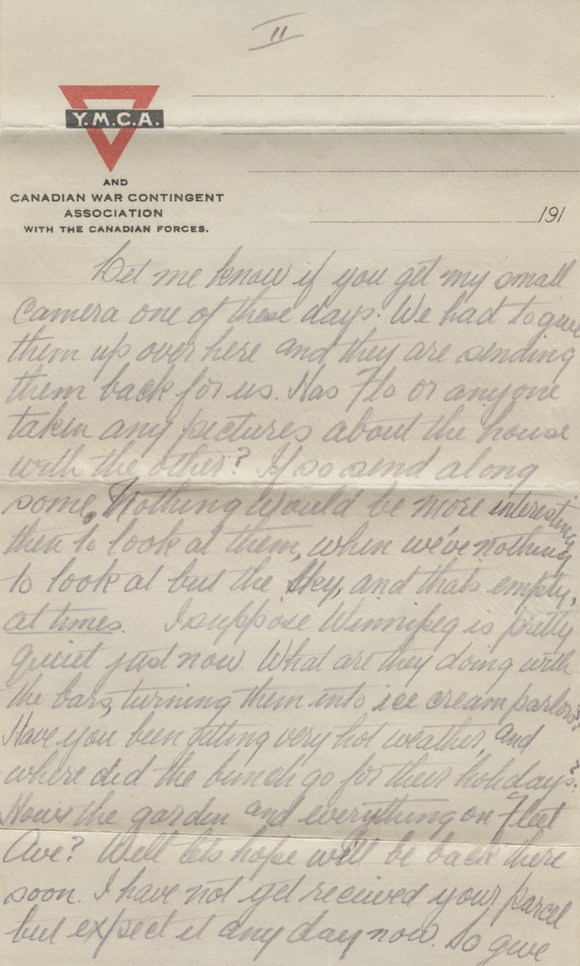 II
Y.M.C.A.
AND
CANADIAN WAR CONTINGENT
ASSOCIATION
WITH THE CANADIAN FORCES.
191
Let me know if you get my small
camera one of these days. We had to give
them up over here and they are sending
them back for us. Has Flo or anyone
taken any pictures about the house
with the other? If so send along
some. Nothing would be more interesting
then to look at them, when we've nothing
to look at but the sky, and thats empty,
at times. I suppose Winnipeg is pretty
quiet just now. What are they doing with
the bars, turning them into ice cream parlors?
Have you been getting very hot weather, and
where did the bunch go for their holidays?
Hows the garden and everything on Fleet
Ave? Well lets hope we'll be back there
soon. I have not yet received your parcel
but expect it any day now. So give